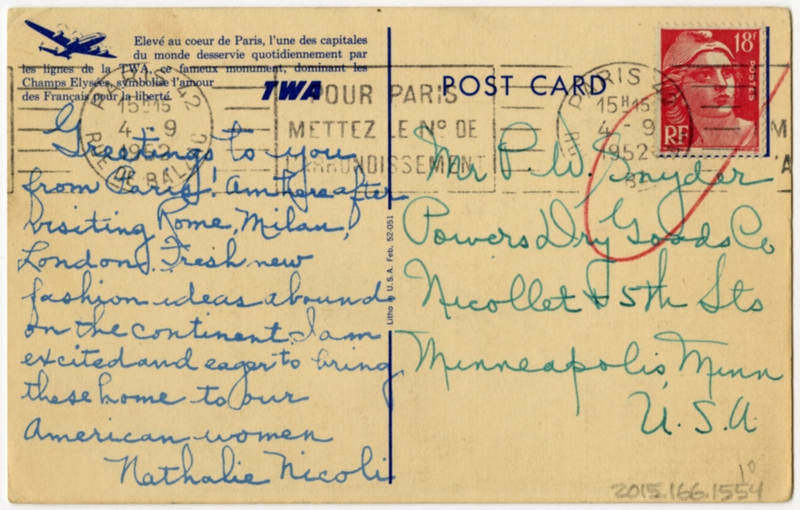 Elevé au coeur de Paris, l'une des capitales
du monde desservie quotidiennement par
les lignes de la TWA, ce fameux monument, dominant les
Champs Elysées, symbolise l'amour
des Français pour la liberté.
TWA
POST CARD
18F
POSTES
RF
PARIS 42
15H15
4 - 9
1952
RUE DE BALZAC
POUR PARIS
METTEZ LE No DE
L'ARRONDISSEMENT
PARIS 42
15H15
4 - 9
1952
Greetings to you
from Paris! Am here after
visiting Rome, Milan,
London. Fresh new
fashion ideas abound
on the continent. I am
excited and eager to bring
these home to our
American women
Nathalie Nicoli
Litho in U.S.A. Feb. 52-051
Mr P. W. Snyder
Powers Dry Goods Co
Nicollet & 5th Sts
Minneapolis, Minn
U.S.A.
10
2015.166.1554